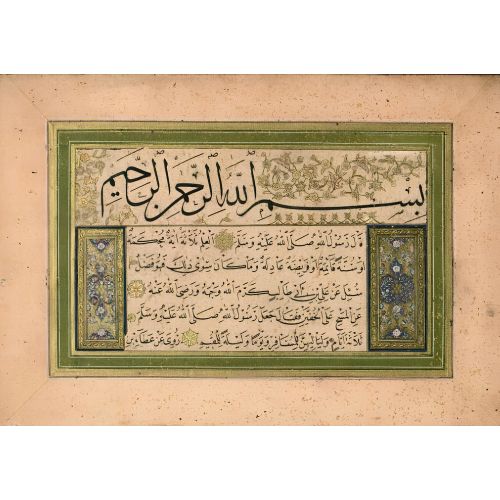 بسم الله الرحمن الرحيم
قال رسول الله صلى الله عليه وسلم العلم ثلاثة آية محكمة
أو سنة قائمة أو فريضة عادلة وما كان سوى ذلك فهو فضل
سئل عن علي بن أبي طالب كرم الله وجهه ورضي الله عنه
عن المسح على الخفين فقال جعل رسول الله صلى الله عليه وسلم
ثلاثة أيام ولياليهن للمسافر ويوما وليلة للمقيم روي عن عطاء بن